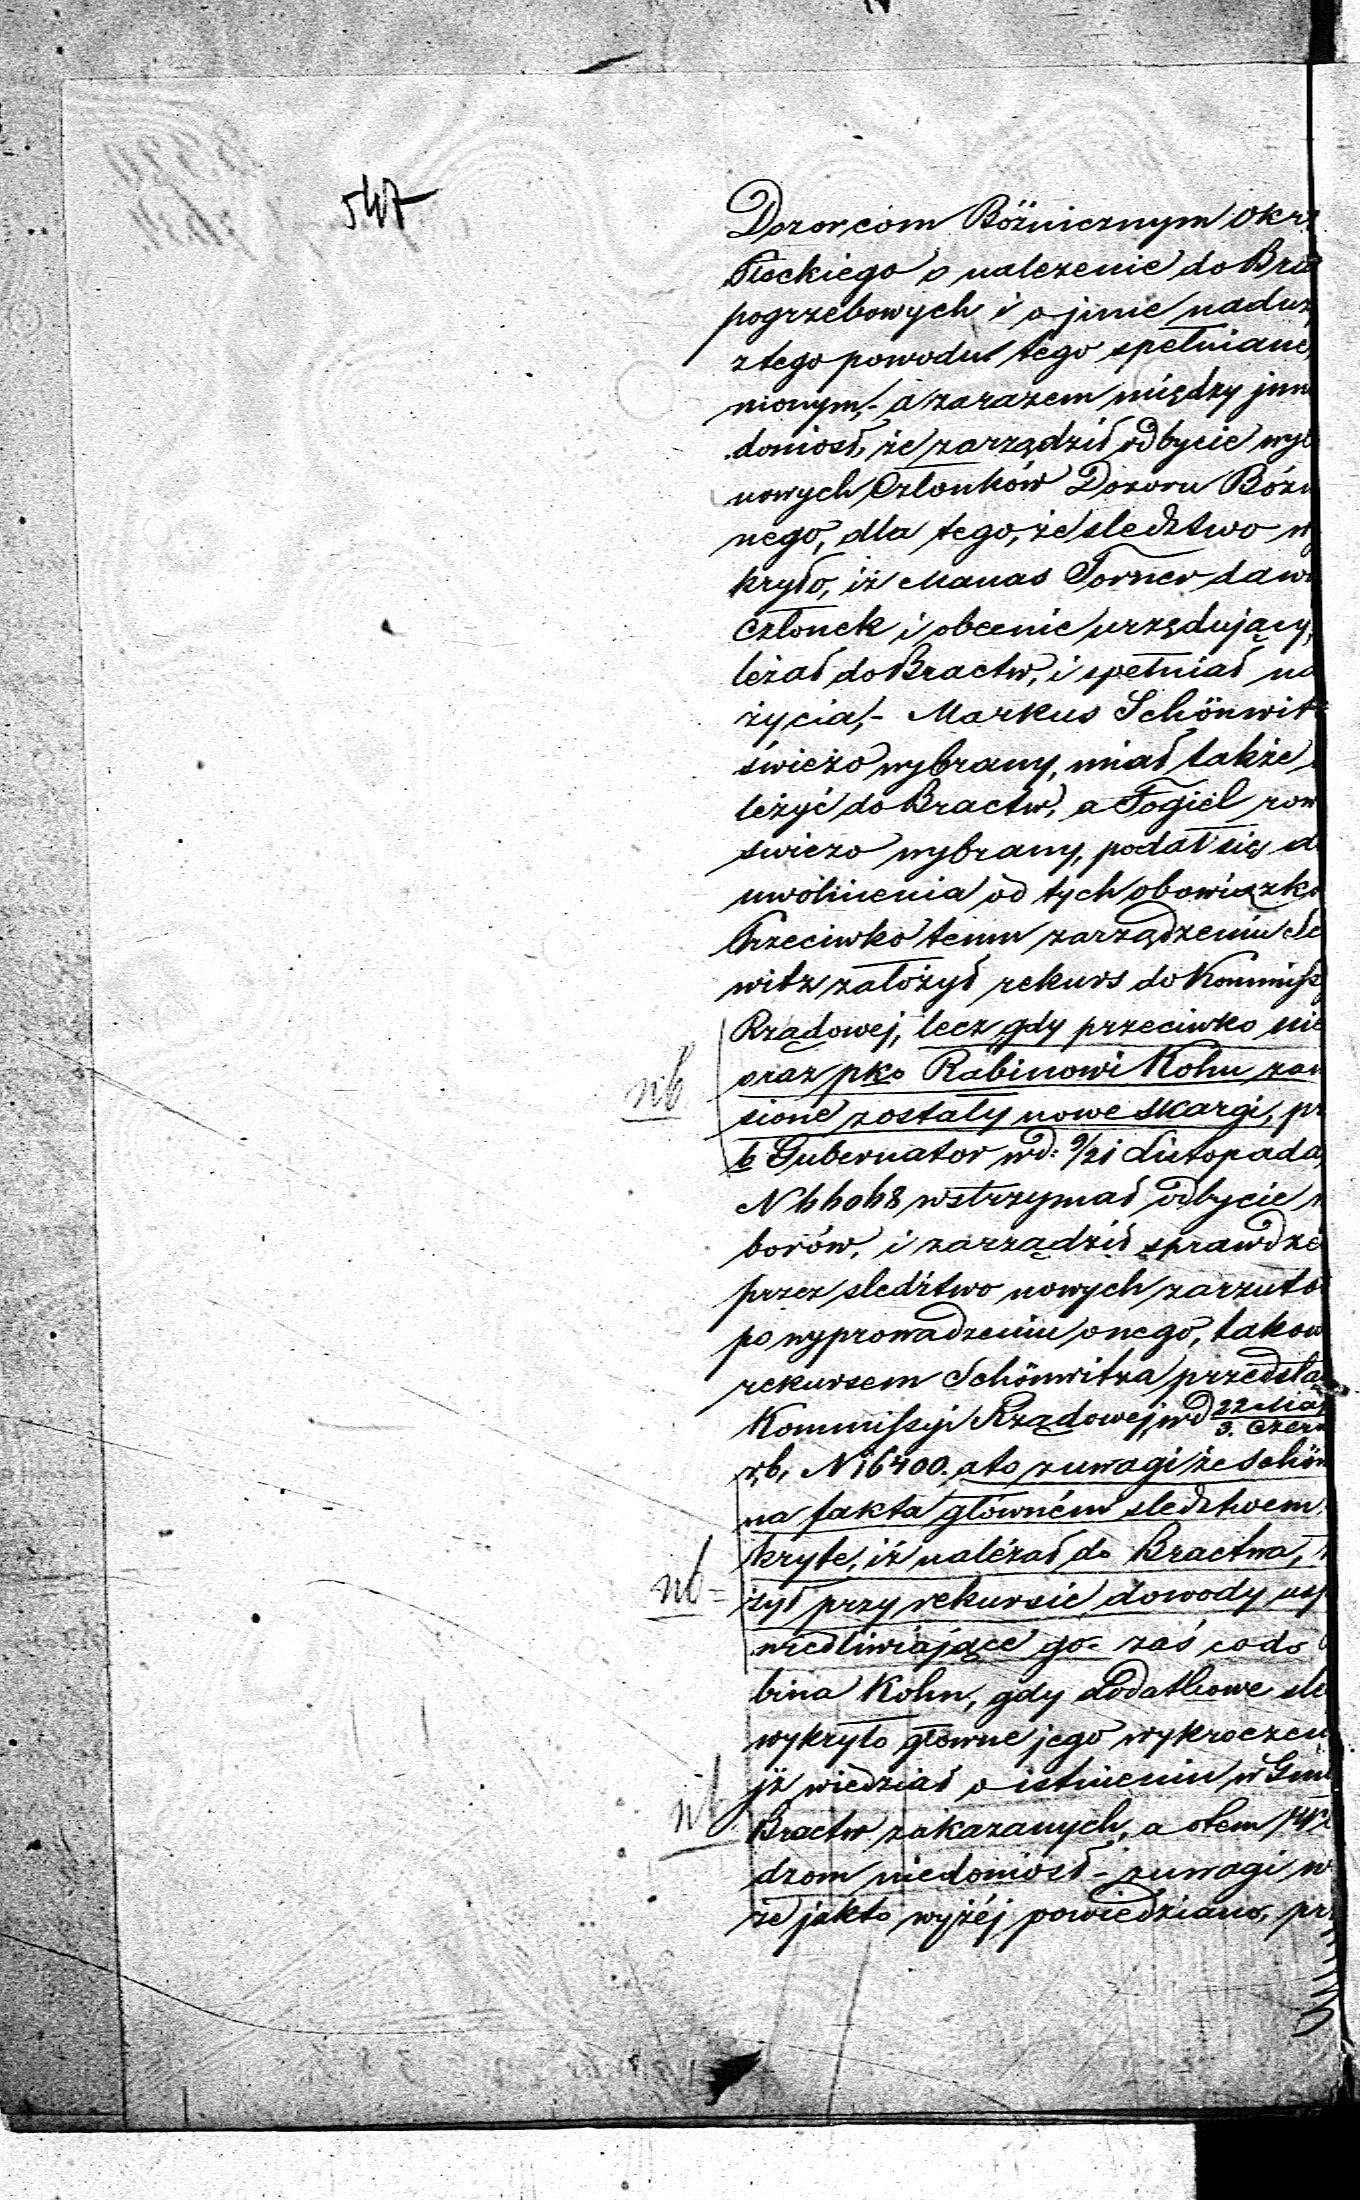 547
Dozorcom Bóżnicznym Okr
Płockiego o należenie do Bra
pogrzebowych i o jnne naduż
z tego powodu tego spełniane
nionym,- a zarazem między jnn
doniosł, że zarządził odbycie wyb
nowych Członków Dozoru Bóżn
nego, dla tego, że sledztwo wy
kryło, iż Manas Torner daw
członek i obecnie urzędujący,
leżał do Bractw, i spełniał na
życia,- Markus Schönwitz
świeżo wybrany, miał także
leżyć do Bractw, a Fogiel rów
swiezo wybrany, podał się do
uwolnienia od tych obowiązkó
Przeciwko temu zarządzeniu
witz założył rekurs do Kommiss
Rządowej, lecz gdy przeciwko nie
nb oraz pko Rabinowi Kohn zan
sione zostały nowe skargi, pr
b Gubernator w d: 9/21 Listopada
N 66068 wstrzymał odbycie
borów, i zarządził sprawdze
przez sledztwo nowych zarzutó
po wyprowadzeniu onego, takow
rekursem Schönwitza przedsta
Kommissyi Rządowej, w d 22 Maj / 3. Czer
r, b, N 16400. a to z uwagi że Schön
na fakta głównem sledztwem
nb= kryte, iż należał do Bractwa,
żył przy rekursie dowody usp
wiedliwiające go- zaś co do
bina Kohn, gdy dodatkowe sle
wykryło główne jego wykroczen
jż wiedział o istnieniu w Gmi
nb Bractw zakazanych, a o tem
dzom niedoniosł- z uwagi w
że jak to wyżéj powiedziano, pr